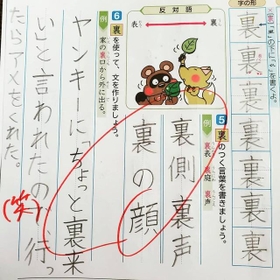 字の形
裏
裏
裏
裏
裏
裏
裏
反対語
表
裏
5 裏のつく言葉を書きましょう。
例 裏表 裏庭 裏声
裏側 裏声
裏の顔
6 裏を使って、文を作りましょう。
例 家の裏口から外に出る。
ヤンキーに「ちょっと裏来
い」と言われたので行っ
たら
くれた。
(笑)